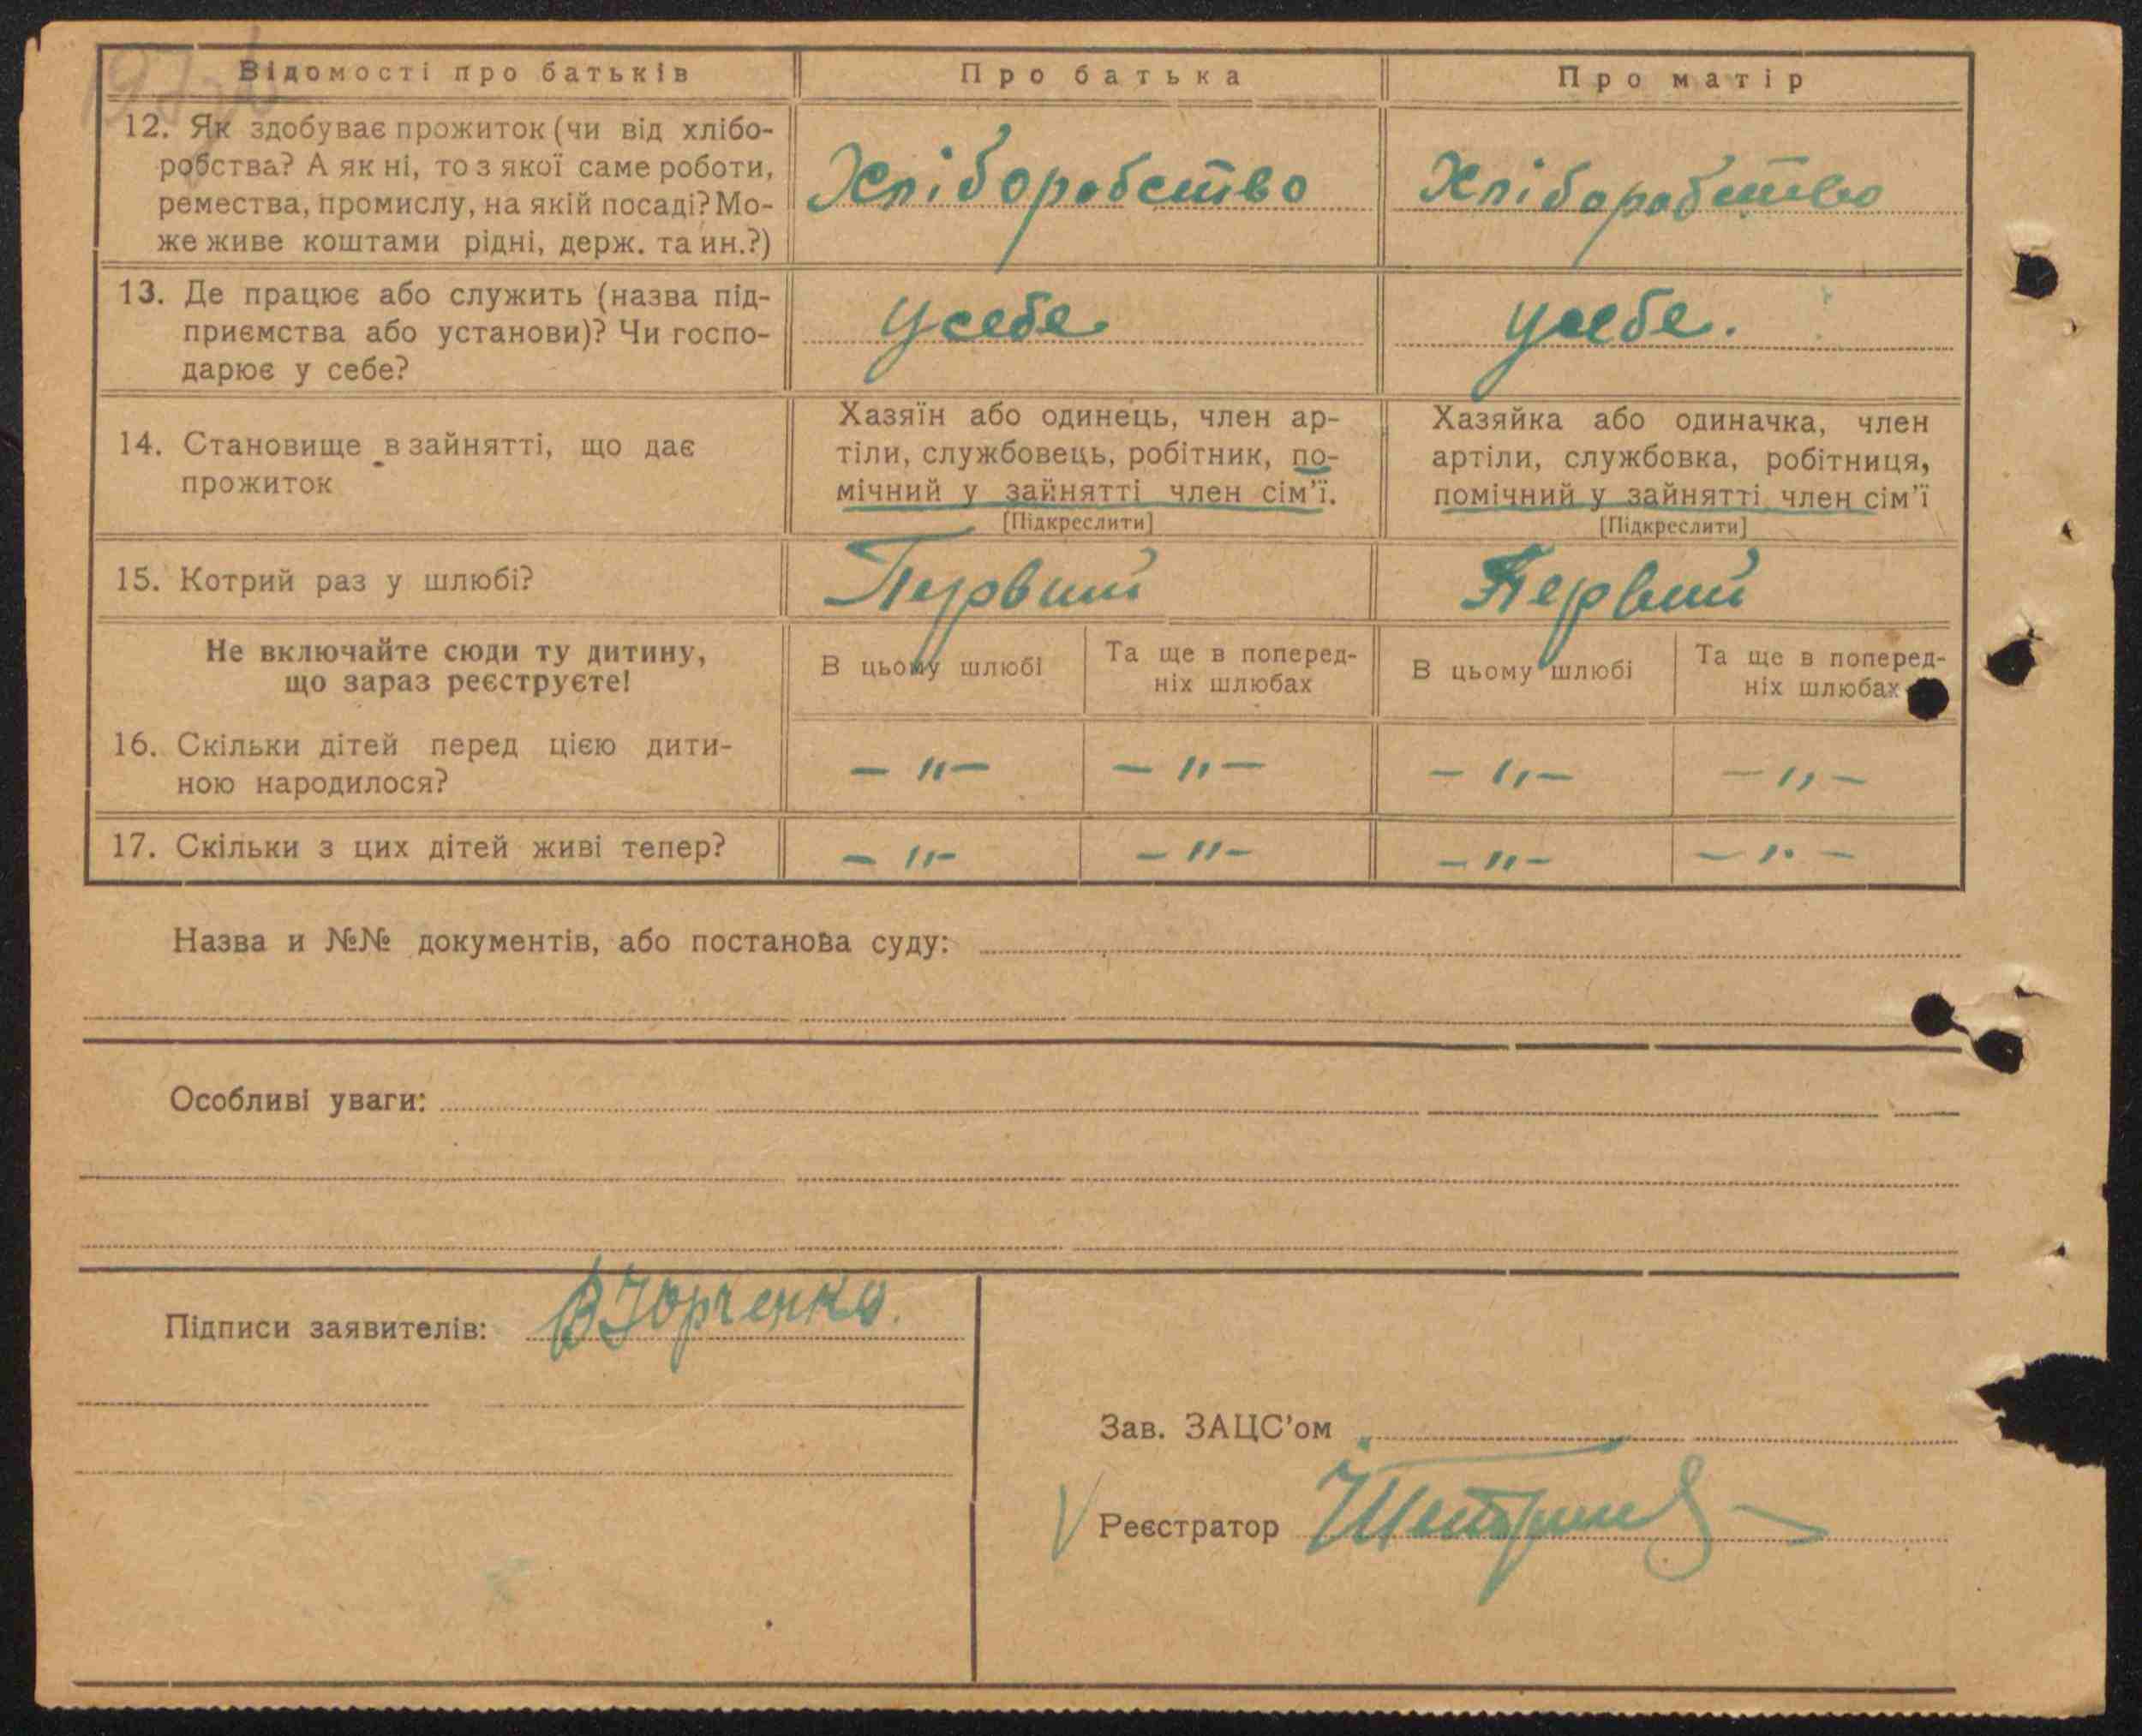 Відомості про батьків Про батька Про матір
12. Як здобуває прожиток (чи від хлібо-
робства? А як ні, то з якої саме роботи,
ремества, промислу, на якій посаді? Мо-
же живе коштами рідні, держ. та ин.?)
Хліборобство Хліборобство
13. Де працює або служить (назва під-
приємства або установи)? Чи госпо-
дарює у себе?
усебе усебе.
14. Становище в зайнятті, що дає
прожиток
Хазяїн або одинець, член ар-
тіли, службовець, робітник, по-
мічний у зайнятті член сім'ї.
[Підкреслити]
Хазяйка або одиначка, член
артіли, службовка, робітниця,
помічний у зайнятті член сім'ї
[Підкреслити]
15. Котрий раз у шлюбі? Первий Первий
Не включайте сюди ту дитину,
що зараз реєструєте!
В цьому шлюбі
Та ще в поперед-
ніх шлюбах
В цьому шлюбі
Та ще в поперед-
ніх шлюбах
16. Скільки дітей перед цією дити-
ною народилося?
— " — — " — — " — — " —
17. Скільки з цих дітей живі тепер? — " — — " — — " — — " —
Назва и №№ документів, або постанова суду:
Особливі уваги:
Підписи заявителів:
Зав. ЗАЦС'ом
Реєстратор